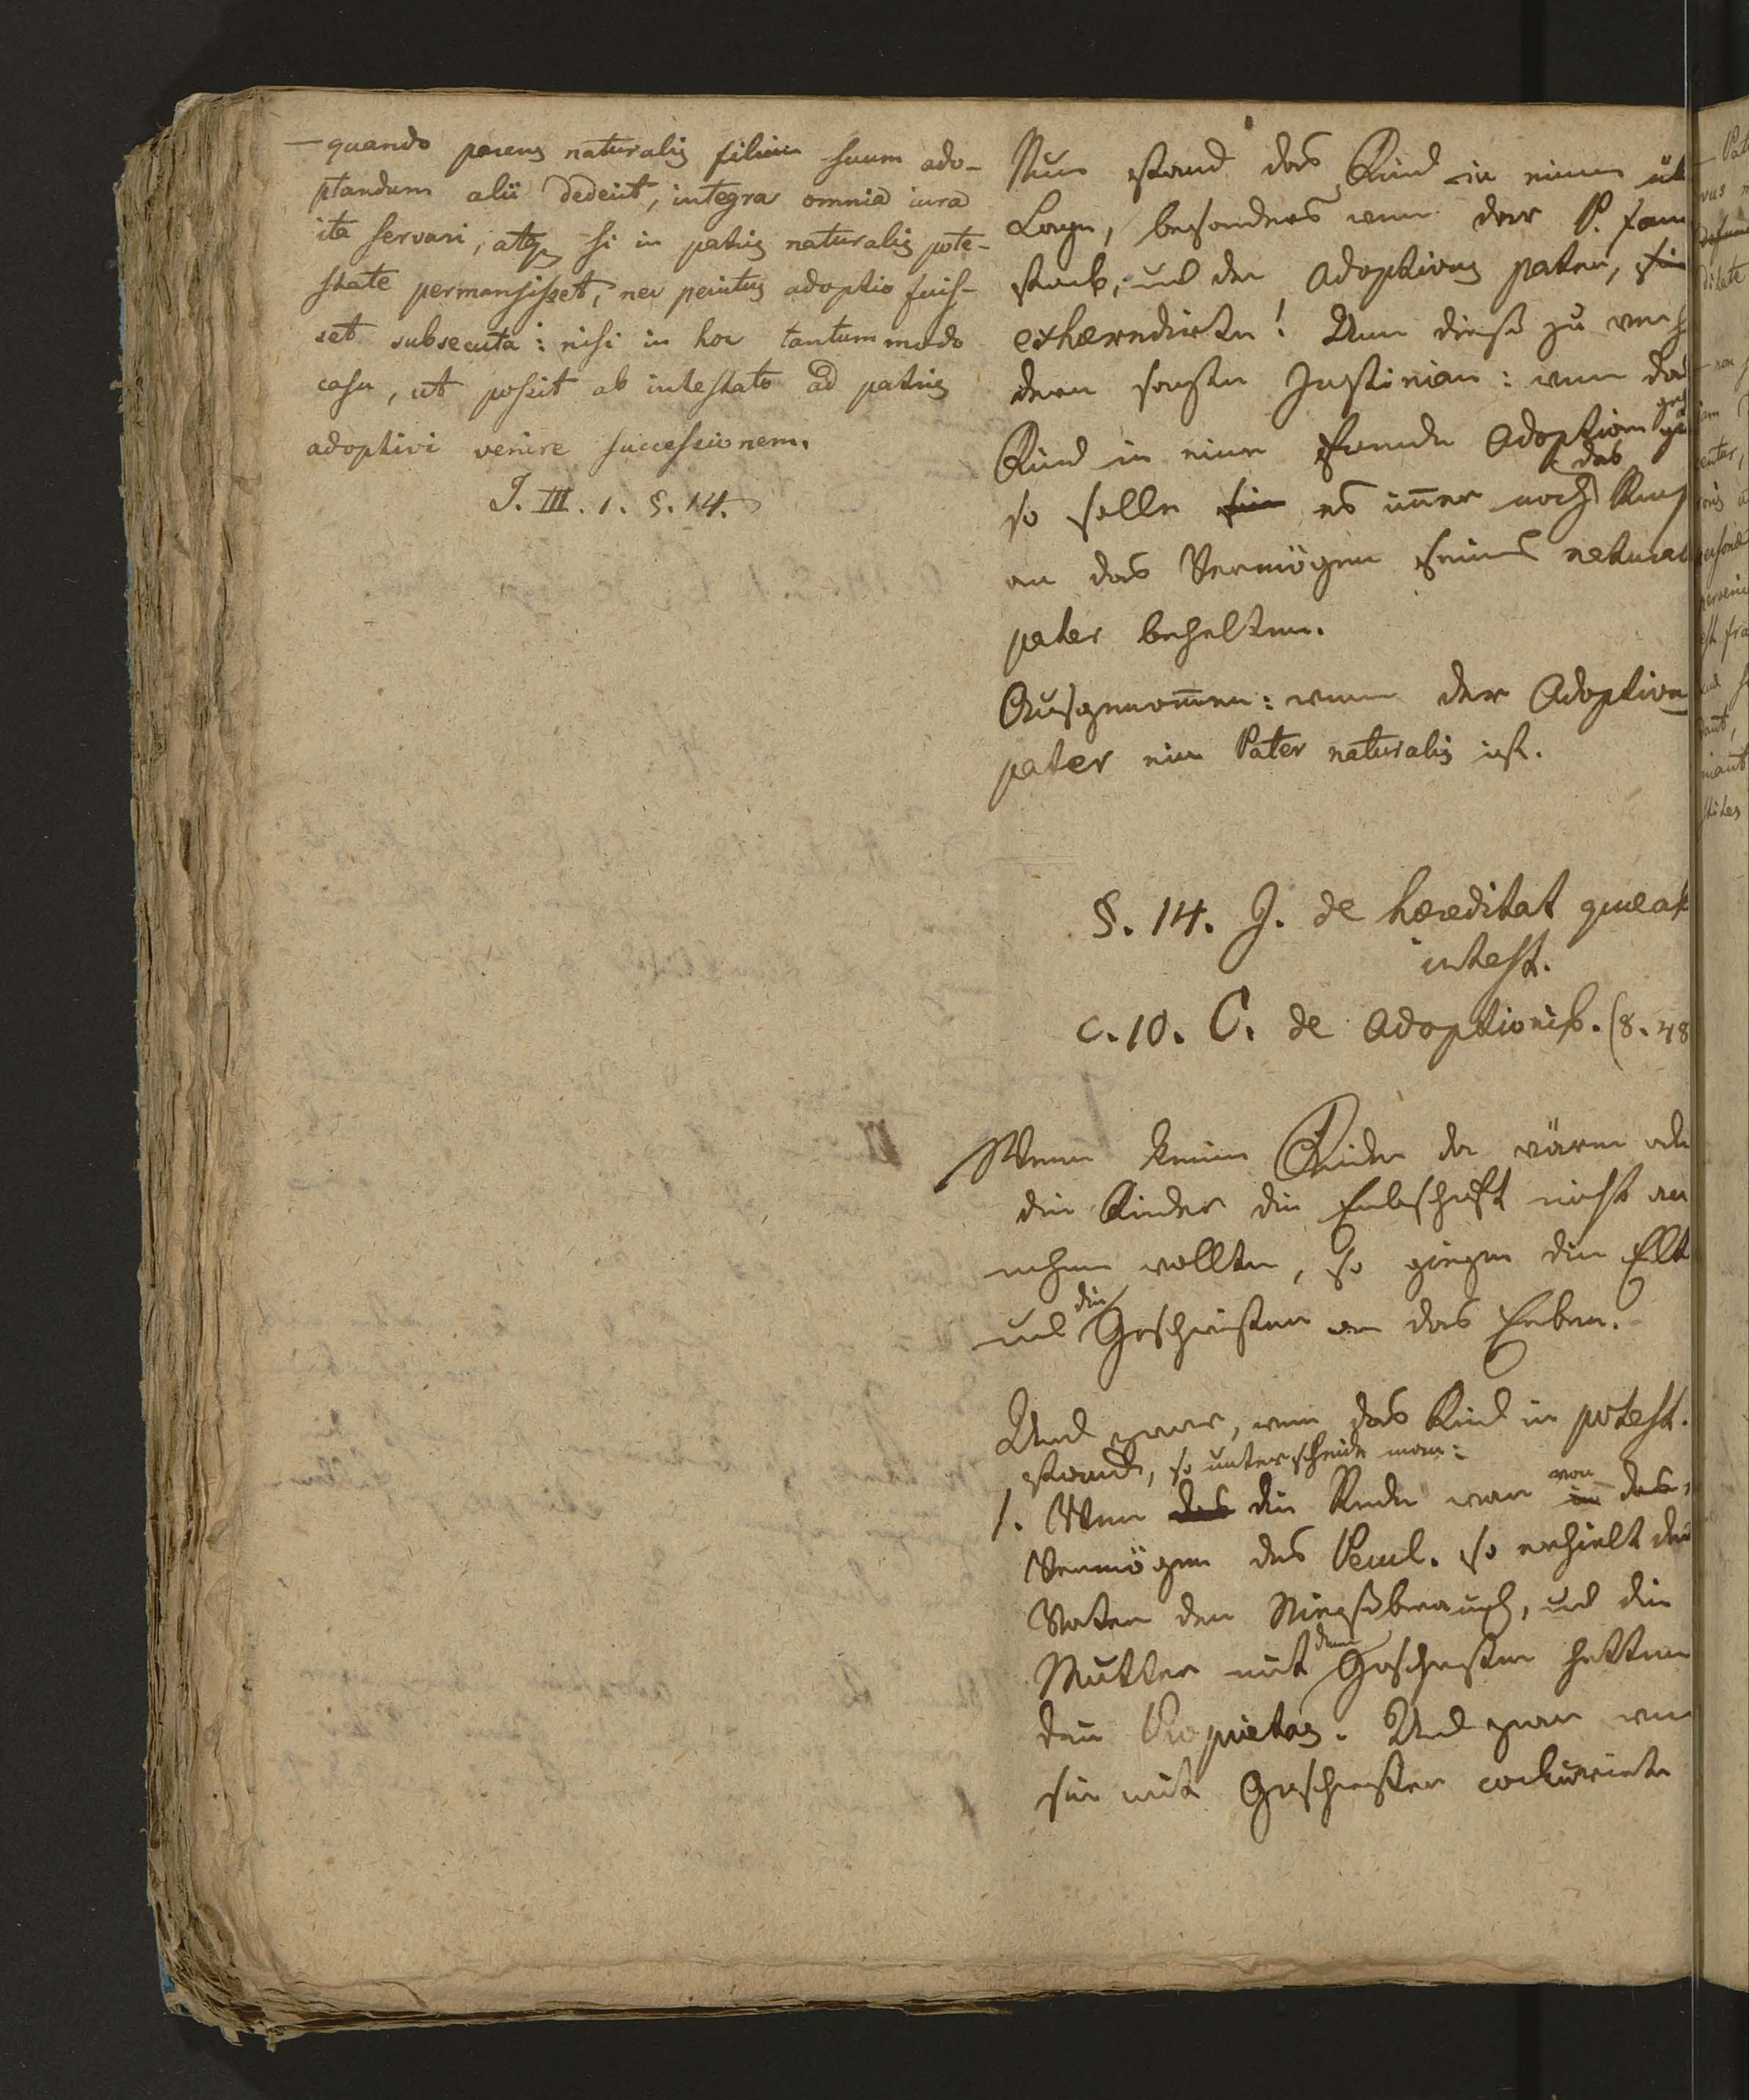 — quando parens naturalis filium suum ado-
ptandum alii dederit, integra omnia iura
ita servari, atq si in patris naturalis pote-
state permansisset, nec penitus adoptio fuis-
set subsecuta: nisi in hoc tantummodo
casu, ut possit ab intestato ad patris
adoptivi venire successionem.
J. III. 1. §. 14.
Nun stand das Kind in einer üb
Lage, besonders wenn der P. fam
starb, und der Adoptivus pater, sie
exhæredirte! Um dieß zu verh
dern sagte Justinian: wenn das
Kind in eine fremde Adoption
so solle sie es im̄er noch das
an das Vermögen seines natural
pater behalten.
Ausgenom̄en: wenn der Adoptiv
pater ein Pater naturalis ist.
§. 14. J. de hæreditat quæ ab
intest.
c. 10. C. de Adoptionib. (8. 48
Wenn keine Kinder da wären od
die Kinder die Erbschaft nicht an
nehmen wollten, so giengen die Elt
und die Geschwister an das Erben.
Und zwar, wenn das Kind in potest.
stand, so unterscheide man:
1. Wenn das die Rede war von in das
Vermögen des Pecul. so erhielt der
Vater den Nießbrauch, und die
Mutter mit den Geschwister hatten
die Proprietas. Und zwar wen
sie mit Geschwister